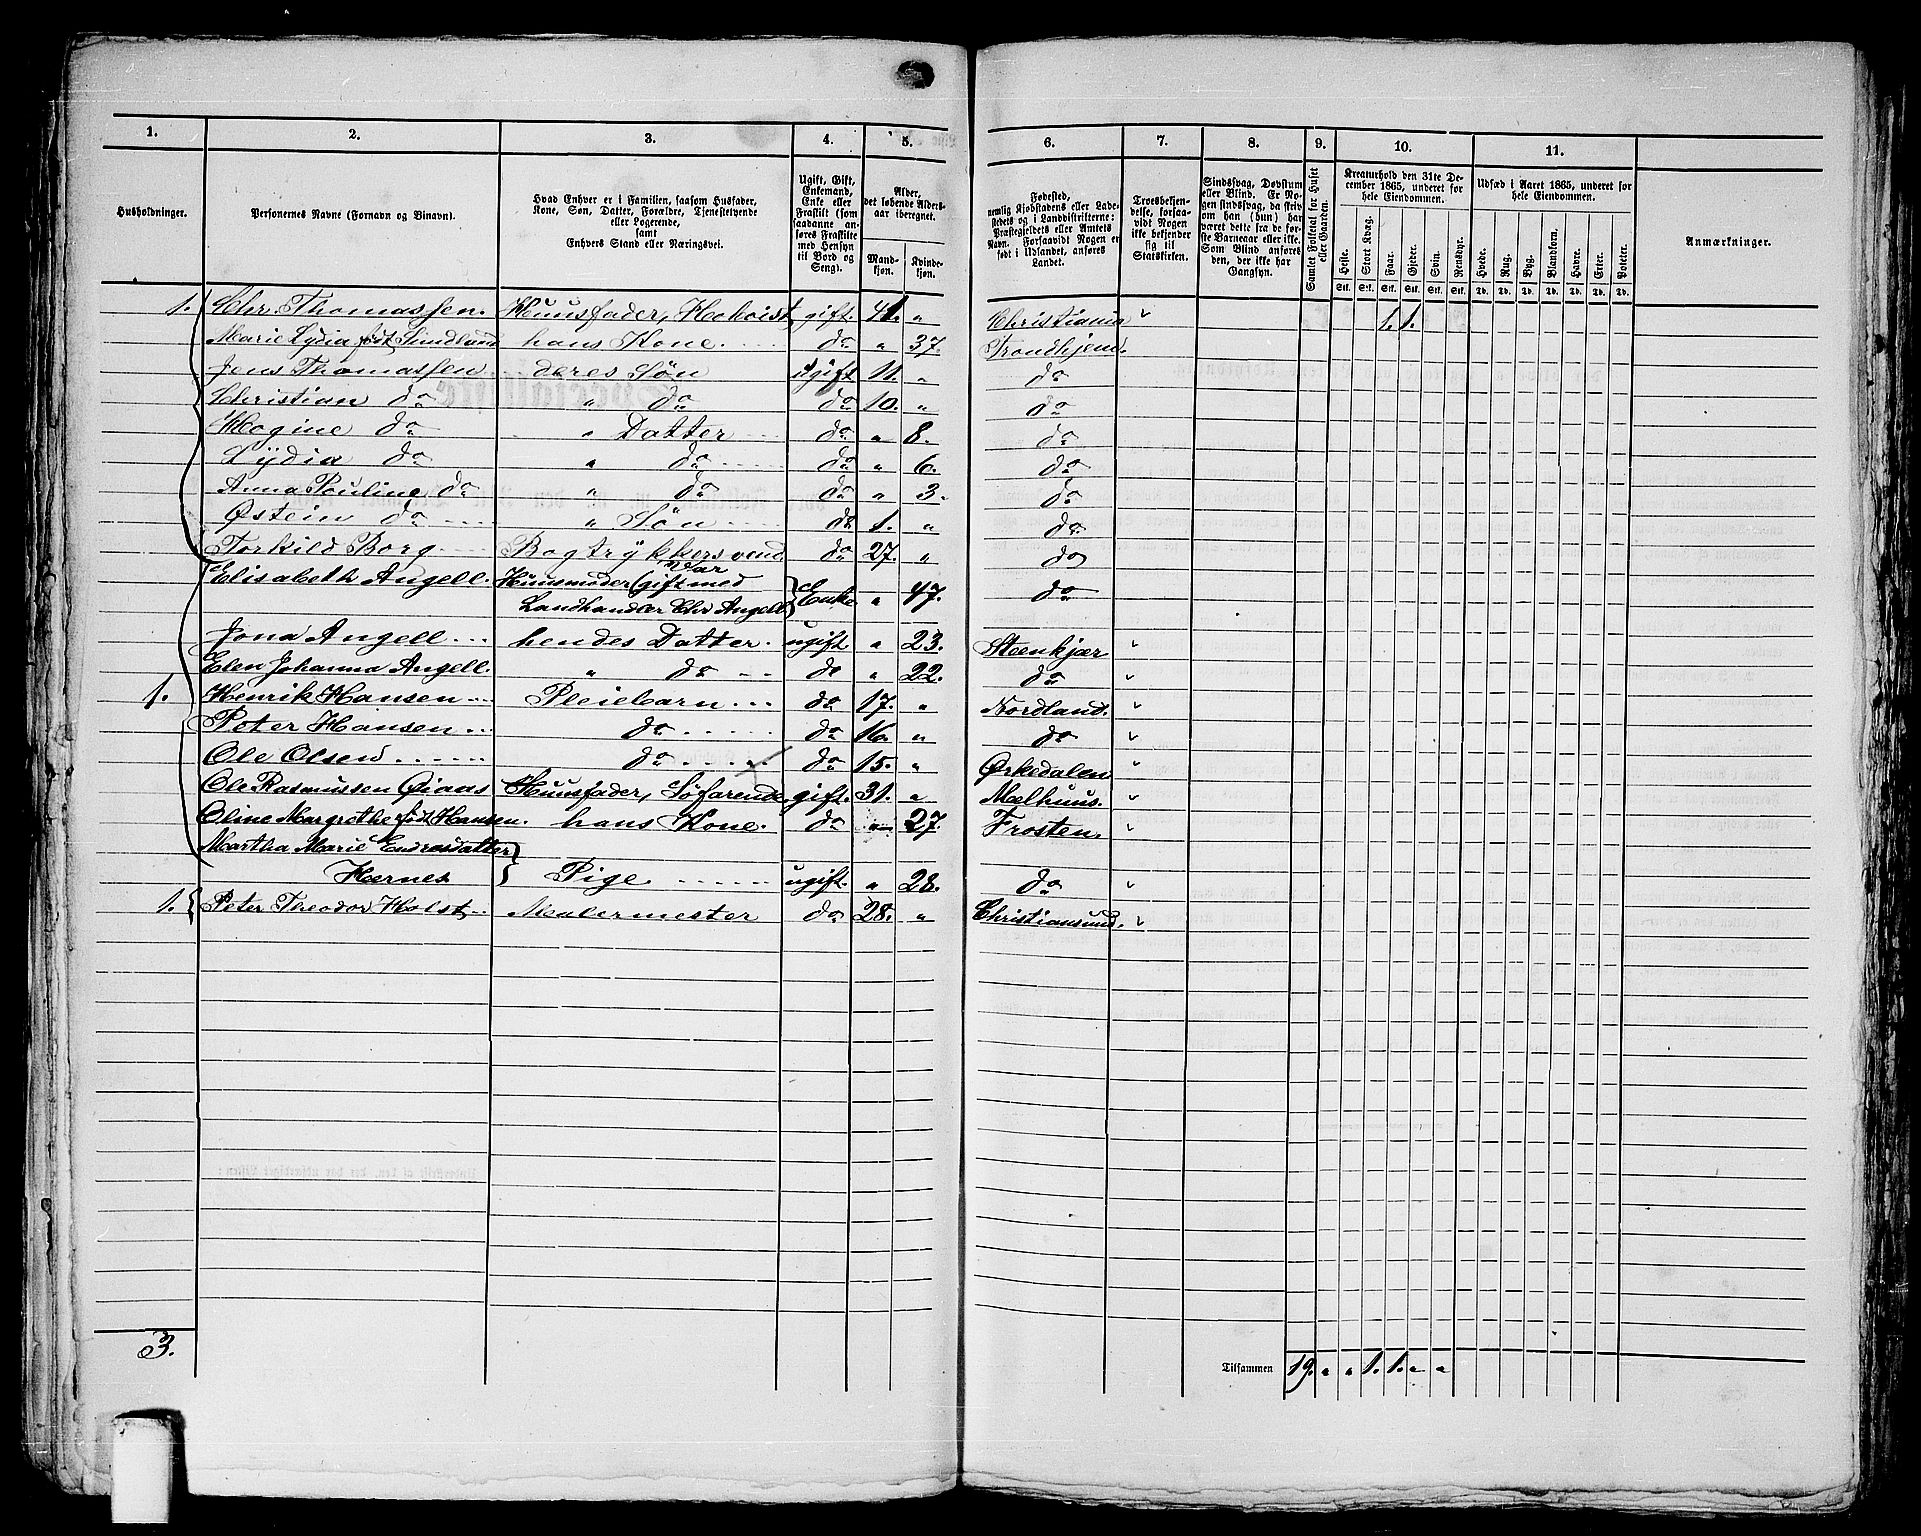 1. 2. 3. 4. 5. 6. 7. 8. 9. 10. 11.
Husholdninger.
Personernes Navne (Fornavn og Binavn).
Hvad Enhver er i Familien, saasom Husfader,
Kone, Søn, Datter, Forældre, Tjenestetyende
eller Logerende,
samt
Enhvers Stand eller Næringsvei.
Ugift, Gift,
Enkemand,
Enke eller
Fraskilt (som
saadanne an-
føres Fraskilte
med Hensyn
til Bord og
Seng).
Alder,
det løbende Alders-
aar iberegnet.
Mand-
kjøn.
Kvinde-
kjøn.
Fødested,
nemlig Kjøbstadens eller Lade-
stedets og i Landdistrikterne:
Præstegjeldets eller Amtets
Navn. Forsaavidt Nogen er
født i Udlandet, anføres
Landet.
Troesbekjen-
delse, forsaa-
vidt Nogen
ikke bekjender
sig til
Statskirken.
Sindssvag, Døvstum
eller Blind. Er No-
gen sindssvag, da skri-
ves om han (hun) har
været dette fra de før-
ste Barneaar eller ikke.
Som Blind anføres
den, der ikke har
Gangsyn.
Samlet Folketal for Huset
eller Gaarden.
Kreaturhold den 31te De-
cember 1865, underet for
hele Eiendommen.
Heste. Stort Kvæg. Faar. Gjeder. Svin. Rensdyr.
Stk. Stk. Stk. Stk. Stk. Stk.
Udsæd i Aaret 1865, underet for
hele Eiendommen.
Hvede. Rug. Byg. Blandkorn. Havre. Erter. Poteter.
Td. Td. Td. Td. Td. Td. Td.
Anmærkninger.
1. Chr. Thomassen. Huusfader, Hoboist gift. 41. " Christiania " 1. 1.
Marie Lydia født Sundland hans Kone. do " 37. Trondhjem.
Jens Thomassen deres Søn ugift 11. " do
Christian do " do do 10. " do
Hogine do " Datter do " 8. do
Lydia do " do do " 6. do
Anna Pauline do " do do " 3. do
Østein do " Søn do 1. " do
Torkild Borg Bogtrykkersvend do 27. " do
Elisabeth Angell. Huusmoder (var gift med
Landhandler Chr Angell) Enke " 47. do
Jona Angell hendes Datter. ugift " 23. Steenkjær "
Elen Johanna Angell. " do do " 22. do "
1. Henrik Hansen Pleiebarn do 17. " Nordland. "
Peter Hansen do do 16. " do "
Ole Olsen do do 15. " Ørkedalen "
Ole Rasmussen Øiaas Huusfader, Søfarende gift. 31. " Melhuus. "
Oline Margrethe født Hansen. hans Kone. do " 27. Frosten. "
Martha Marie Endresdatter
Hernes Pige ugift. " 28. do "
1. Peter Theodor Holst Malermester do 28. " Christiansund. "
3.
Tilsammen 19. " " 1. 1. " "